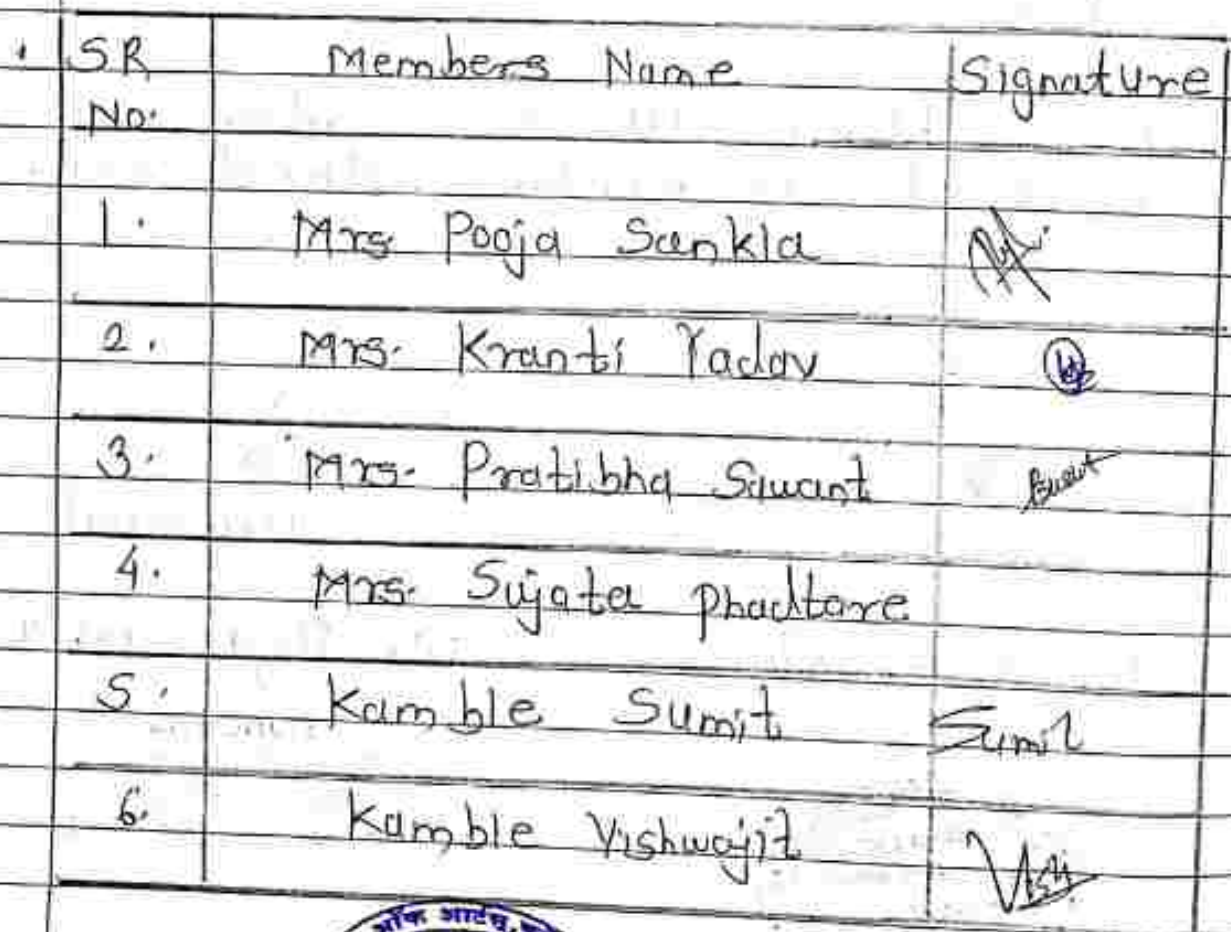 SR No. Members Name Signature
1. Mrs. Pooja Sankla
2. Mrs. Kranti Yadav
3. Mrs. Pratibha Sawant
4. Mrs. Sujata Phadtare
5. Kamble Sumit Sumit
6. Kamble Vishwajit
ऑफ आर्टस्,